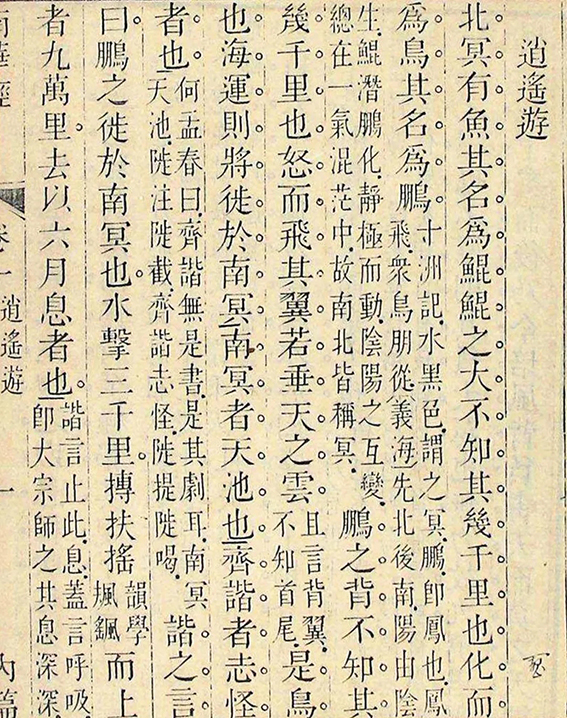 逍遙遊
北冥有魚其名爲鯤鯤之大不知其幾千里也化而
爲鳥其名爲鵬
十洲記水黑色謂之冥鵬卽鳳也鳳
飛衆鳥朋從義海先北後南陽由陰
生鯤潛鵬化靜極而動陰陽之互變
總在一氣混茫中故南北皆稱冥
鵬之背不知其
幾千里也怒而飛其翼若垂天之雲
且言背翼
不知首尾
是鳥
也海運則將徙於南冥南冥者天池也齊諧者志怪
者也
何孟春曰齊諧無是書是其劇耳南冥
天池陡注陡截齊諧志怪陡提陡喝
諧之言
曰鵬之徙於南冥也水擊三千里摶扶搖
韻學
而上
者九萬里去以六月息者也
諧言止此息蓋言呼吸
卽大宗師之其息深深
南華經
卷一
逍遙遊
一
內篇